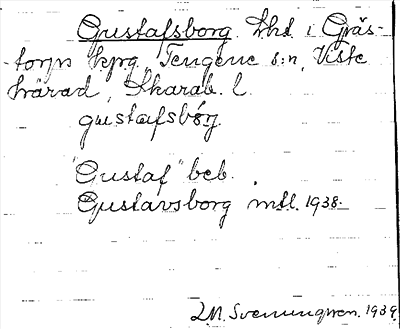 Gustafsborg lht i Gräs-
torps kpg, Tengene s:n, Viste
härad, Skarab. l.
gustafsbórj
"Gustaf" beb.
Gustavsborg mtl. 1938.
Svenungsson. 1939.